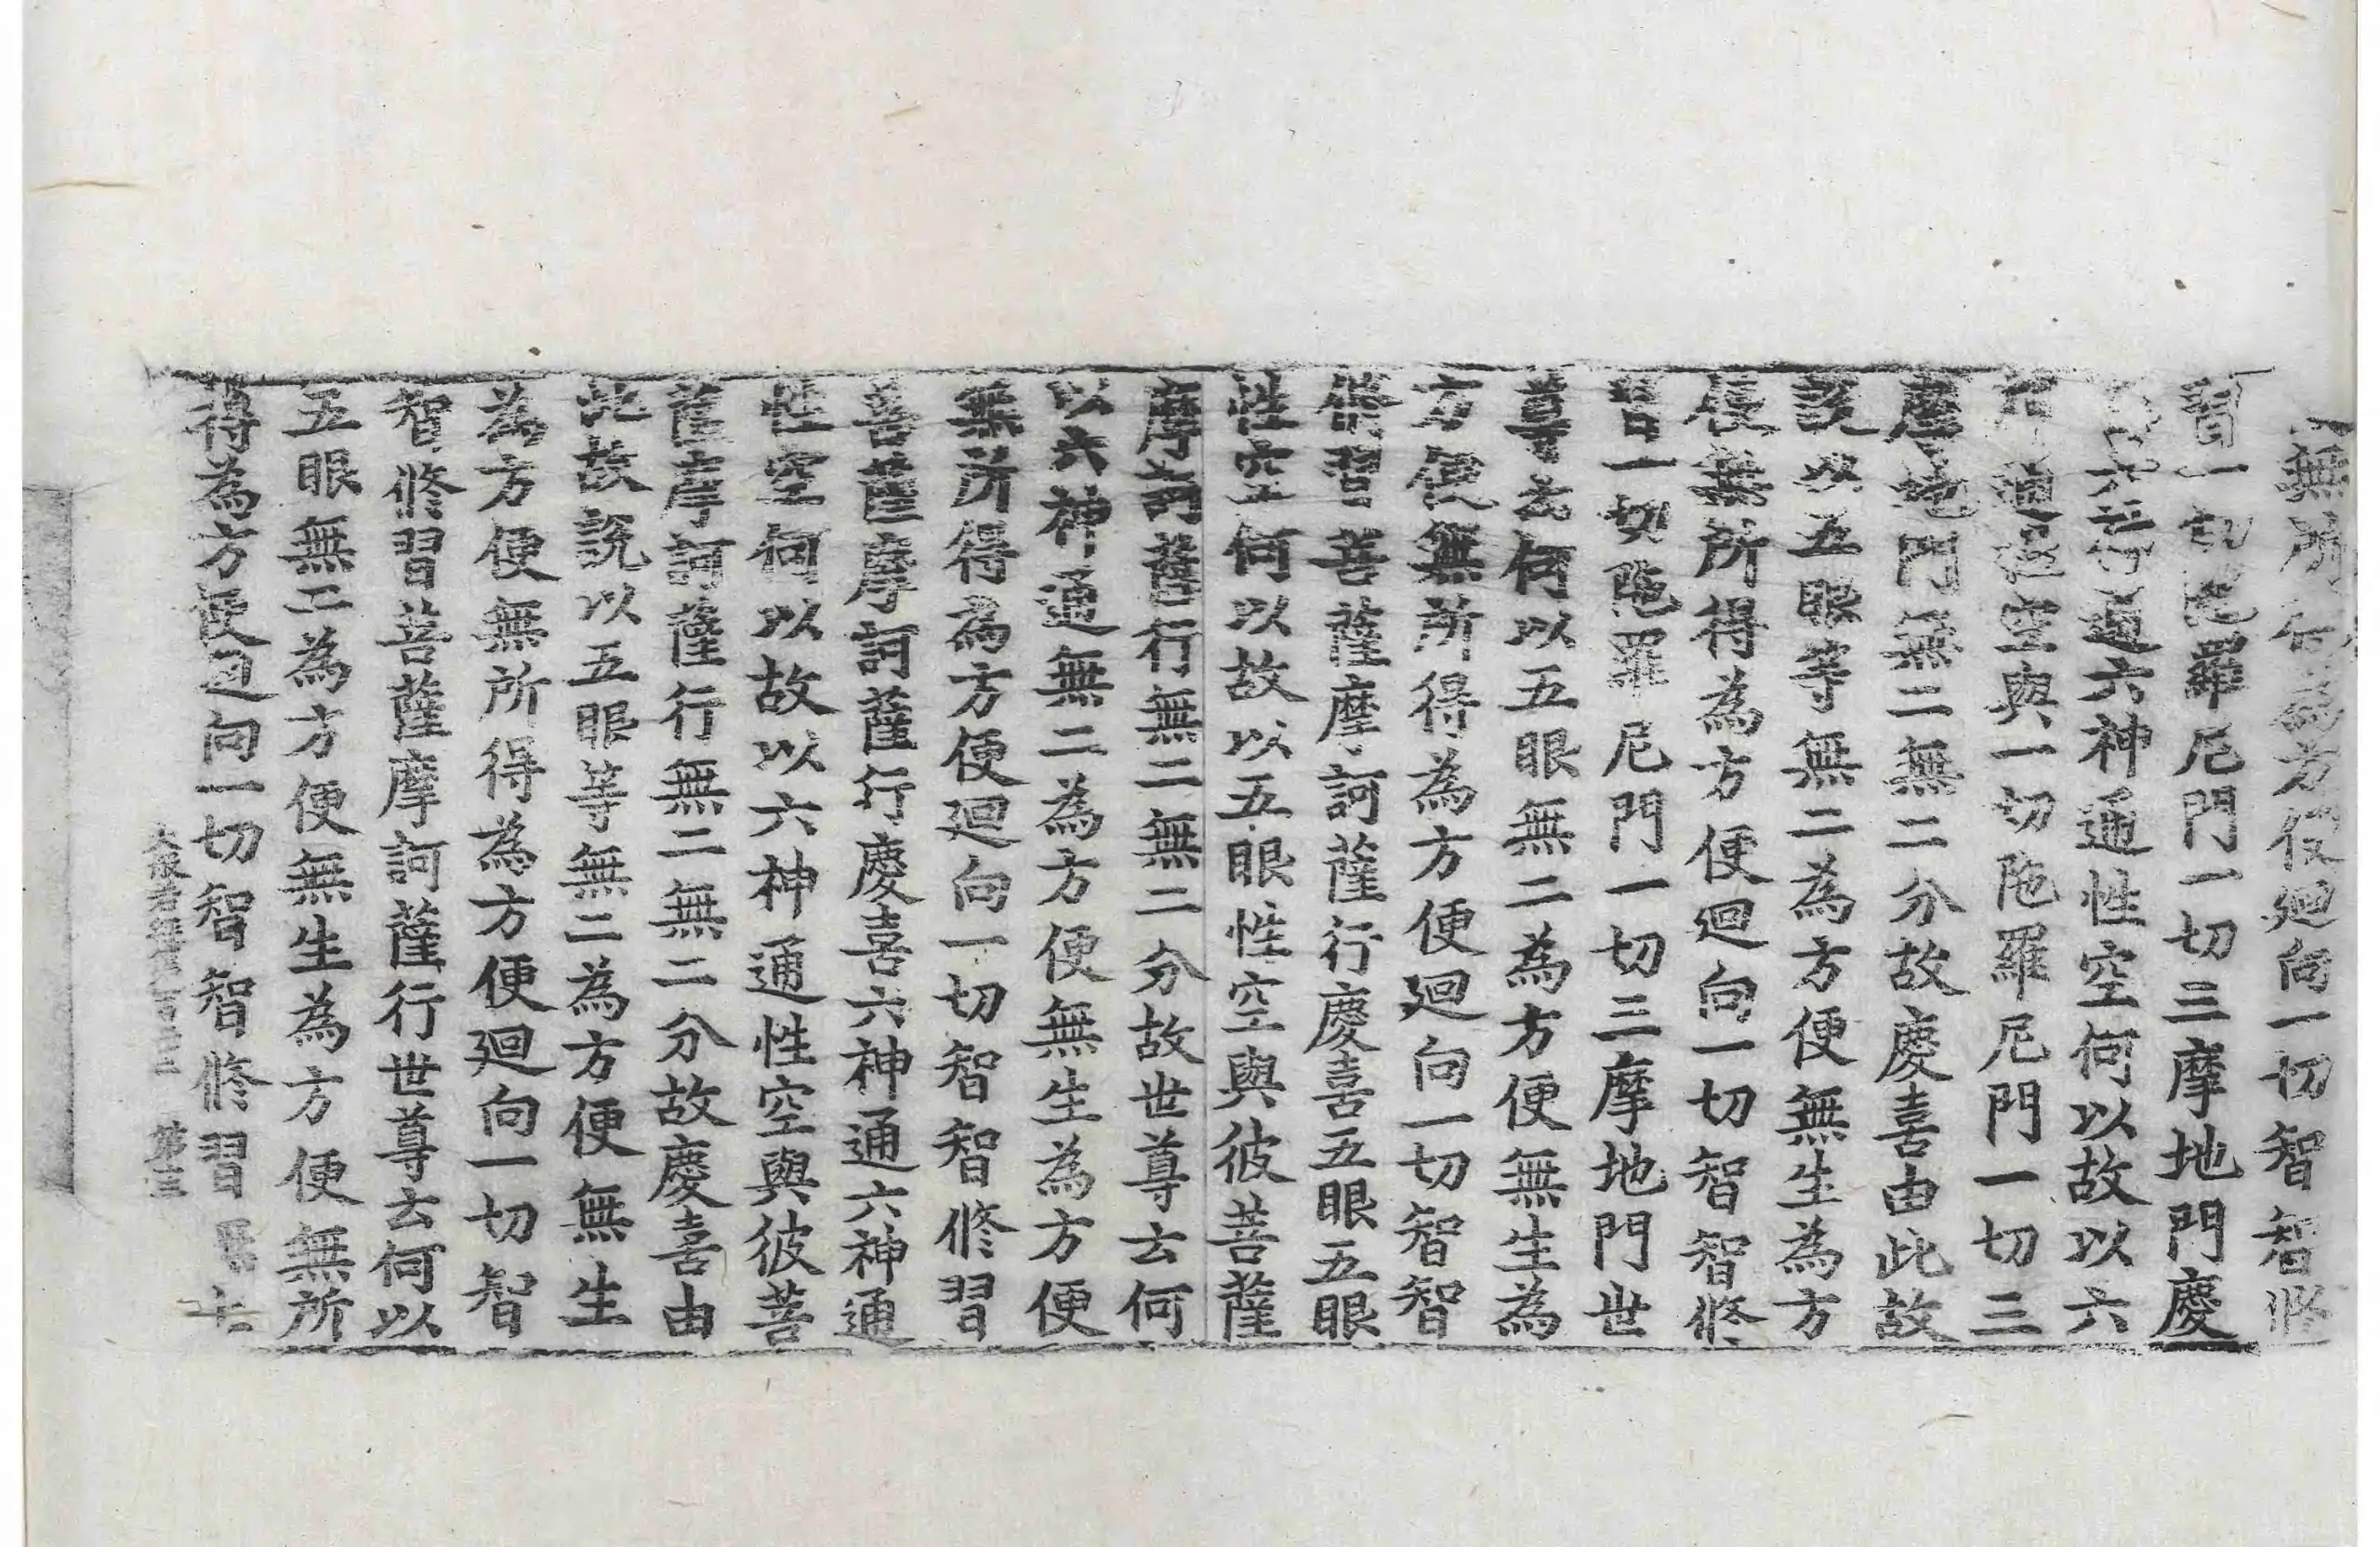 無所得為方便廻向一切智智修
習一切陁羅尼門一切三摩地門慶
六神通六神通性空何以故以六
神通性空與一切陁羅尼門一切三
摩地門無二無二分故慶喜由此故
說以五眼等無二為方便無生為方
便無所得為方便廻向一切智智修
習一切陁羅尼門一切三摩地門世
尊云何以五眼無二為方便無生為
方便無所得為方便廻向一切智智
修習菩薩摩訶薩行慶喜五眼五眼
性空何以故以五眼性空與彼菩薩
摩訶薩行無二無二分故世尊云何
以六神通無二為方便無生為方便
無所得為方便廻向一切智智修習
菩薩摩訶薩行慶喜六神通六神通
性空何以故以六神通性空與彼菩
薩摩訶薩行無二無二分故慶喜由
此故說以五眼等無二為方便無生
為方便無所得為方便廻向一切智
智修習菩薩摩訶薩行世尊云何以
五眼無二為方便無生為方便無所
得為方便廻向一切智智修習
大般若經